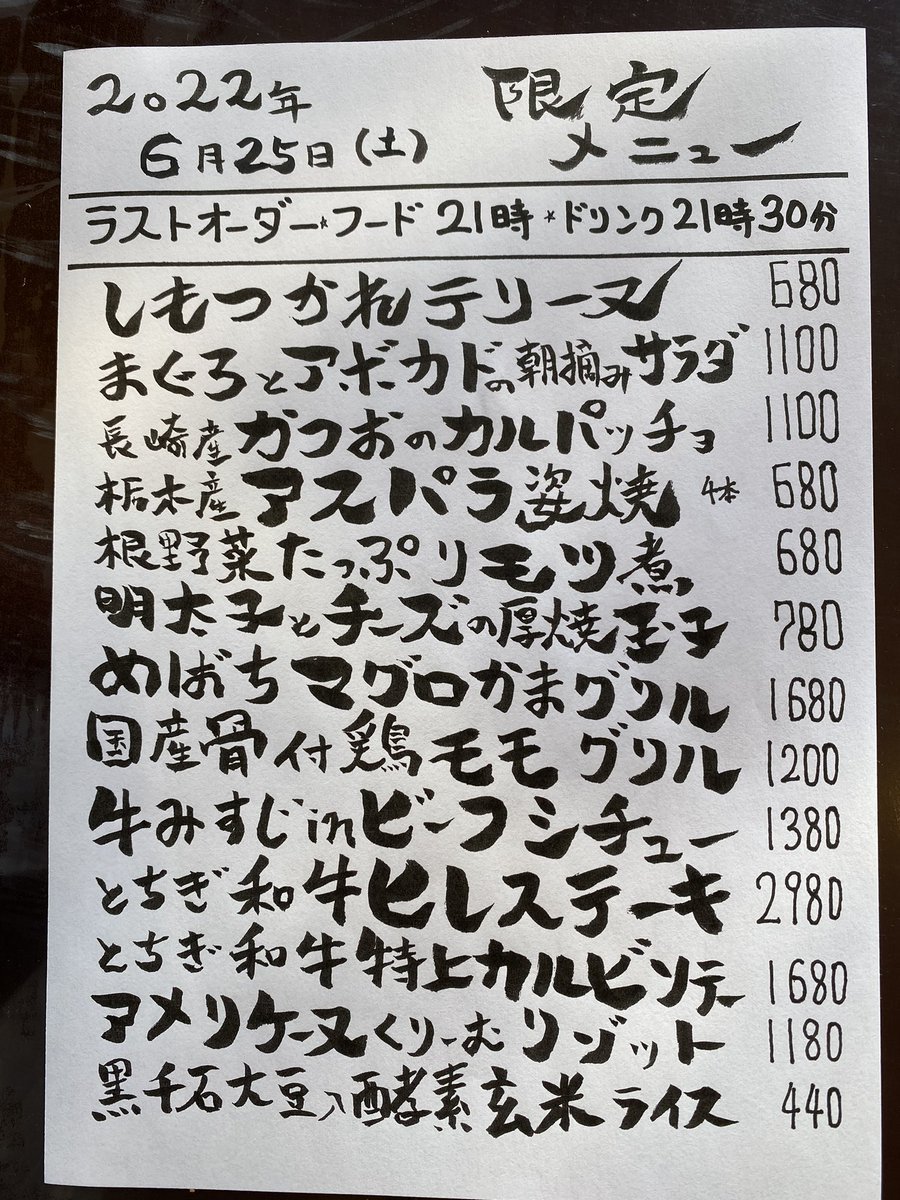 2022年 限定
6月25日(土) メニュー
ラストオーダー*フード 21時*ドリンク21時30分
しもつかれテリーヌ 680
まぐろとアボカドの朝摘みサラダ 1100
長崎産かつおのカルパッチョ 1100
栃木産アスパラ姿焼 4本 680
根野菜たっぷりモツ煮 680
明太子とチーズの厚焼玉子 780
めばちマグロかまグリル 1680
国産骨付鶏モモグリル 1200
牛みすじinビーフシチュー 1380
とちぎ和牛ヒレステーキ 2980
とちぎ和牛特上カルビソテー 1680
アメリケーヌくりーむリゾット 1180
黒千石大豆入酵素玄米ライス 440